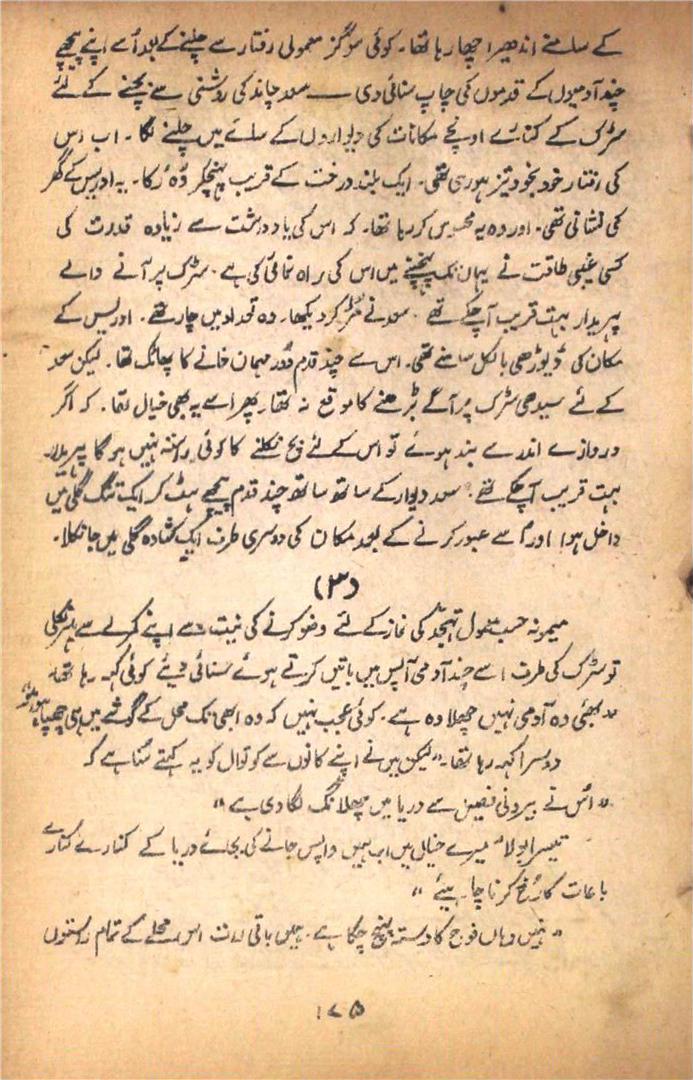 کے سامنے اندھیرا چھا رہا تھا۔ کوئی سو گز معمولی رفتار سے چلنے کے بعد اُسے اپنے پیچھے
چند آدمیوں کے قدموں کی چاپ سنائی دی ــــ سعد چاند کی روشنی سے بچنے کے لئے
سڑک کے کنارے اونچے مکانات کی دیواروں کے سائے میں چلنے لگا۔ اب اس
کی رفتار خود بخود تیز ہو رہی تھی۔ ایک بلند درخت کے قریب پہنچکر وُہ رُکا۔ یہ ادریس کے گھر
کی نشانی تھی۔ اور وہ یہ محسوس کر رہا تھا۔ کہ اس کی یادداشت سے زیادہ قدرت کی
کسی غیبی طاقت نے یہاں تک پہنچنے میں اس کی راہ نمائی کی ہے۔ سڑک پر آنے والے
پہریدار بہت قریب آ چکے تھے۔ سعد نے مُڑ کر دیکھا۔ وہ تعداد میں چار تھے۔ ادریس کے
مکان کی ڈیوڑھی بالکل سامنے تھی۔ اس سے چند قدم دُور مہمان خانے کا پھاٹک تھا۔ لیکن سعد
کے لئے سیدھی سڑک پر آگے بڑھنے کا موقع نہ تھا۔ پھر اسے یہ بھی خیال تھا۔ کہ اگر
دروازے اندر سے بند ہوئے تو اس کے لئے بچ نکلنے کا کوئی راستہ نہیں ہوگا پہریدار
بہت قریب آ چکے تھے۔ سعد دیوار کے ساتھ ساتھ چند قدم پیچھے ہٹ کر ایک تنگ گلی میں
داخل ہوا اور اُسے عبور کرنے کے بعد مکان کی دوسری طرف ایک کشادہ گلی میں جا نکلا۔
(۳)
میمونہ حسب معمول تہجد کی نماز کے لئے وضو کرنے کی نیت سے اپنے کمرے سے باہر نکلی
تو سڑک کی طرف اسے چند آدمی آپس میں باتیں کرتے ہوئے سنائی دیئے کوئی کہہ رہا تھا۔
"بھئی وہ آدمی نہیں چھلاوہ ہے۔ کوئی عجب نہیں کہ وہ ابھی تک محل کے گوشے میں ہی چھپا ہوا ہو۔"
دوسرا کہہ رہا تھا۔ "لیکن میں نے اپنے کانوں سے کوتوال کو یہ کہتے سُنا ہے کہ
"اُس نے بیرونی فصیل سے دریا میں چھلانگ لگا دی ہے"
تیسرا بولا "میرے خیال میں اب ہمیں واپس جانے کی بجائے دریا کے کنارے کنارے
باغات کا رُخ کرنا چاہیئے"
"نہیں وہاں فوج کا دستہ پہنچ چکا ہے۔ ہمیں باقی رات اس محلے کے تمام راستوں
۱۷۵